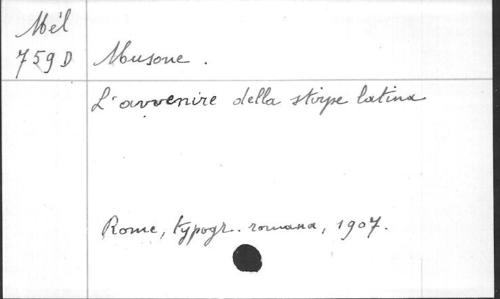 Mél
759 D
Musone.
L'avvenire della stirpe latina
Rome, typogr. romana, 1907.